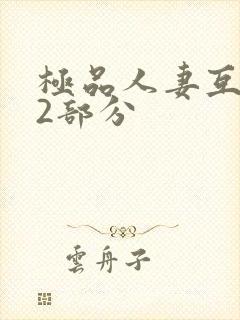 極品人妻互
2部分
雲舟子